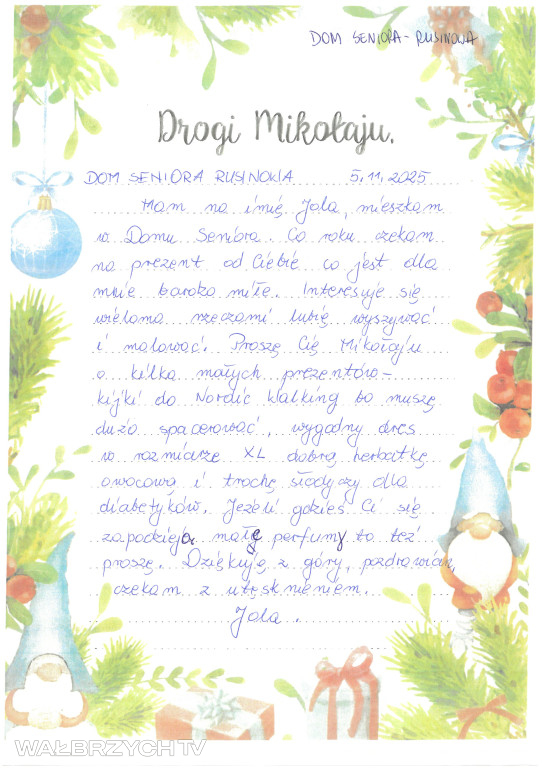 DOM SENIORA - RUSINOWA
Drogi Mikołaju,
DOM SENIORA RUSINOWA 5.11.2025
Mam na imię Jola, mieszkam
w Domu Seniora. Co roku czekam
na prezent od Ciebie co jest dla
mnie bardzo miłe. Interesuje się
wieloma rzeczami lubię wyszywać
i malować. Proszę Cię Mikołaju
o kilka małych prezentów -
kijki do Nordic Walking bo muszę
dużo spacerować, wygodny dres
w rozmiarze XL dobrą herbatkę
owocową i trochę słodyczy dla
diabetyków. Jeżeli gdzieś Ci się
zapodzieją małe perfumy to też
proszę. Dziękuję z góry, pozdrawiam,
czekam z utęsknieniem.
Jola.
WAŁBRZYCH TV